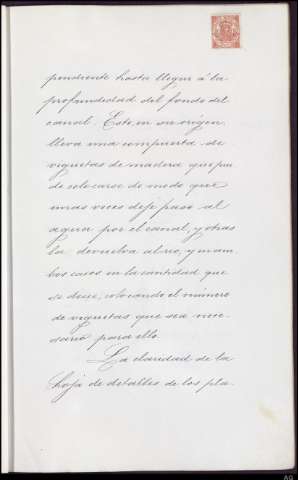 pendiente hasta llegar á la
profundidad del fondo del
canal. Este, en su origen
lleva una compuerta de
viguetas de madera que pue
de colocarse de modo que
unas veces deje paso al
agua por el canal, y otras
la devuelva al rio, y en am
bos casos en la cantidad que
se desee, colocando el número
de viguetas que sea nece-
sario para ello.
La claridad de la
hoja de detalles de los pla-